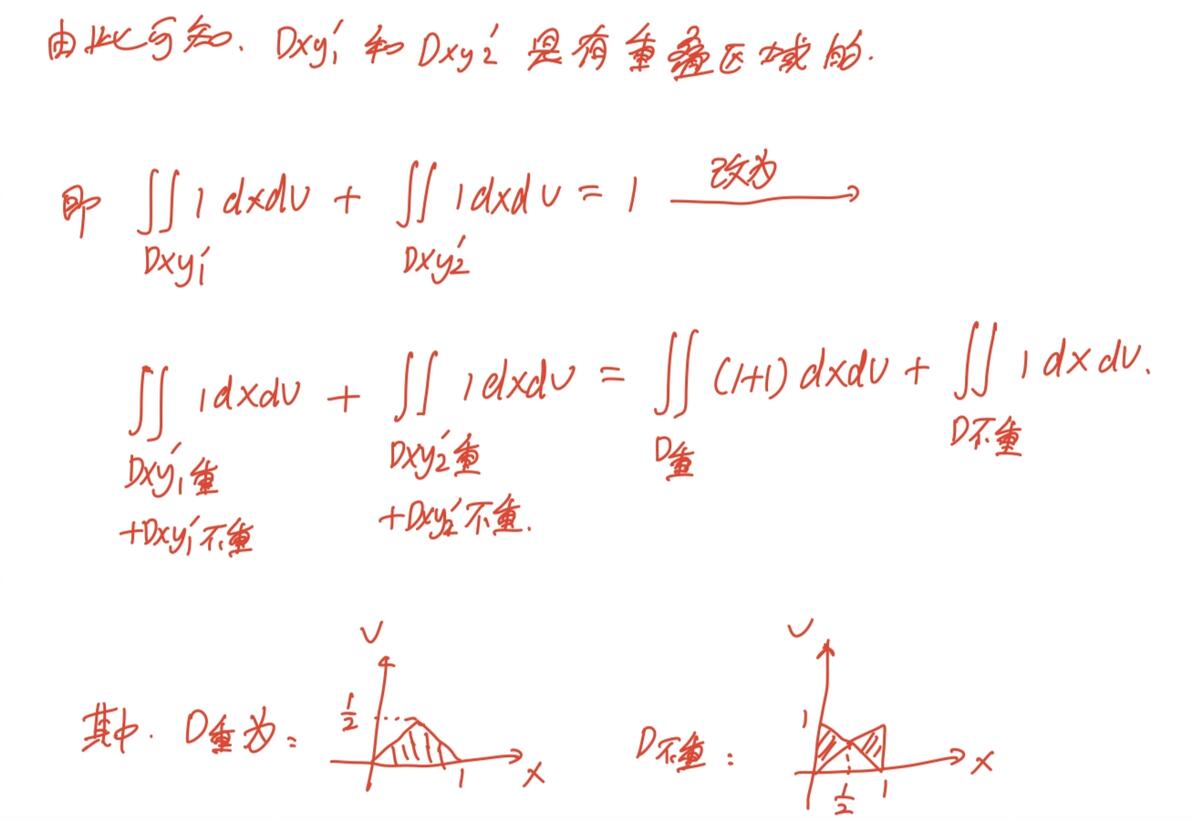 由此可知. Dxy₁′ 和 Dxy₂′ 是有重叠区域的.
即 ∬ 1 dxdv + ∬ 1 dxdv = 1 改为 →
Dxy₁′ Dxy₂′
∬ 1 dxdv + ∬ 1 dxdv = ∬ (1+1) dxdv + ∬ 1 dxdv.
Dxy₁′重 Dxy₂′重 D重 D不重
+Dxy₁′不重 +Dxy₂′不重.
其中. D重为: V 1/2 1 X D不重: V 1 1/2 1 X